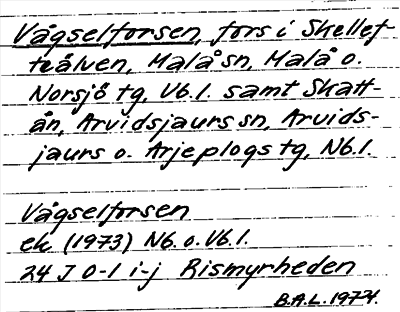 Vågselforsen, fors i Skellef-
teälven, Malå sn, Malå o.
Norsjö tg, Vb.l. samt Skatt-
ån, Arvidsjaurs sn, Arvids-
jaurs o. Arjeplogs tg, Nb.l.
Vågselforsen
ek (1973) Nb. o. Vb.l.
24 J 0-1 i-j Rismyrheden
B.A.L. 1974.